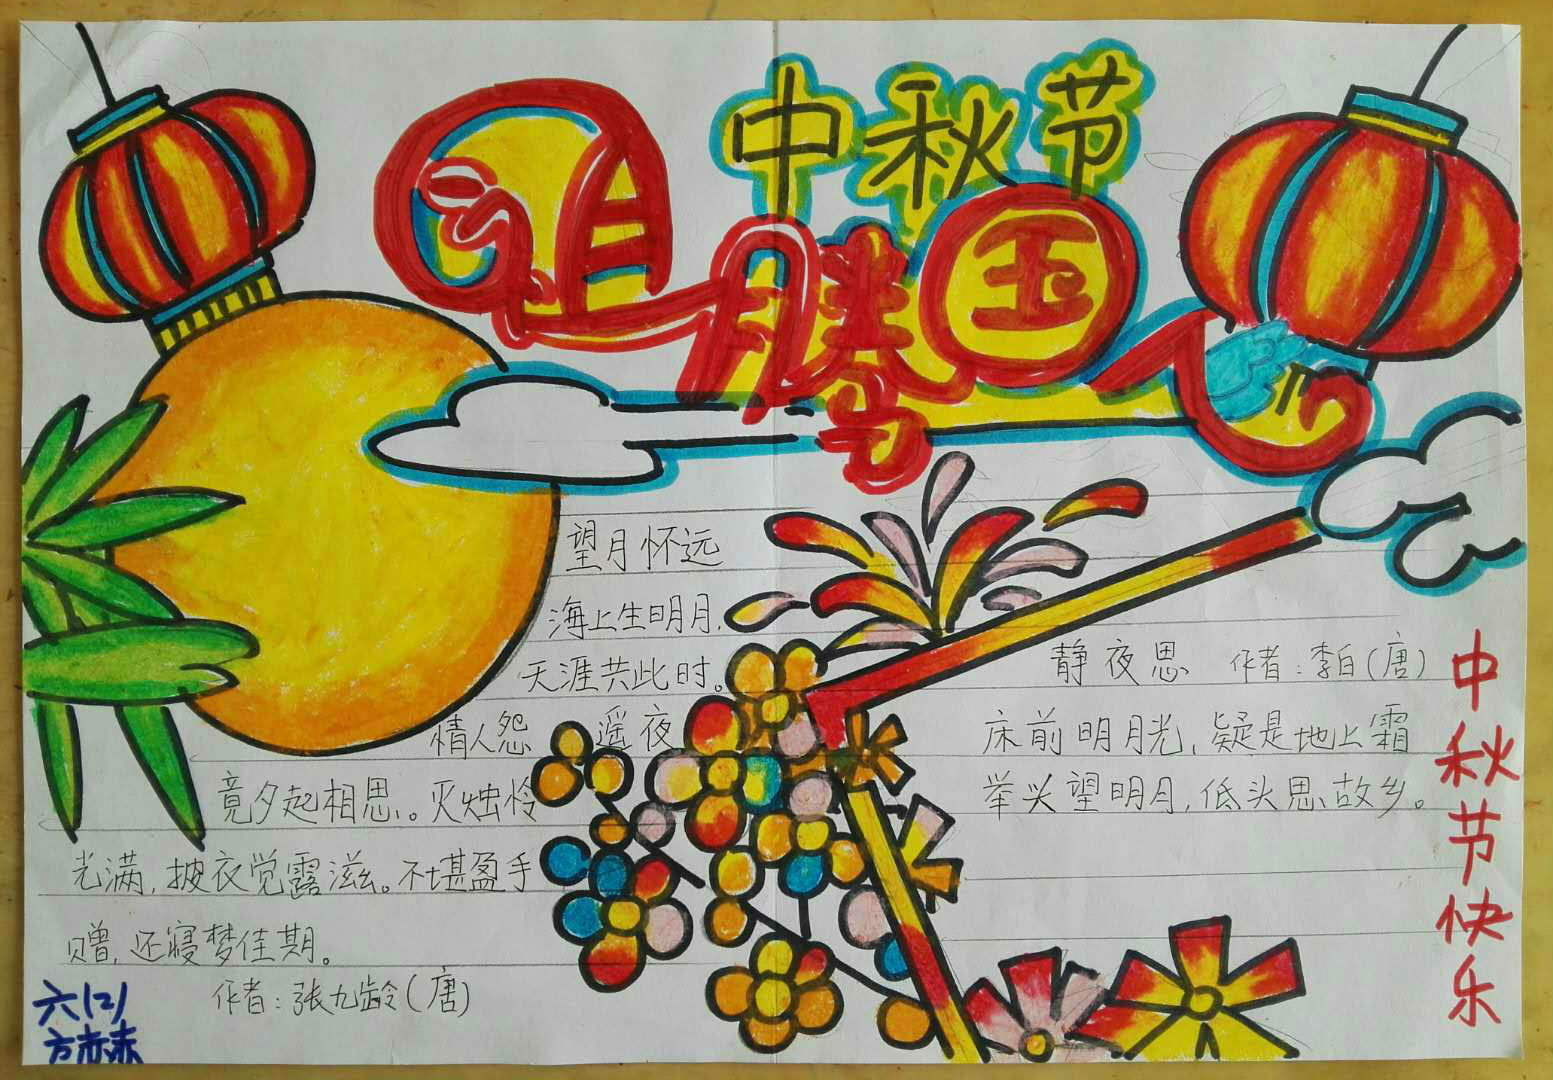 中秋节
月腾玉
望月怀远
海上生明月,
天涯共此时。
情人怨遥夜
竟夕起相思。灭烛怜
光满,披衣觉露滋。不堪盈手
赠,还寝梦佳期。
作者:张九龄(唐)
静夜思 作者:李白(唐)
床前明月光,疑是地上霜
举头望明月,低头思故乡。
中秋节快乐
六(2)